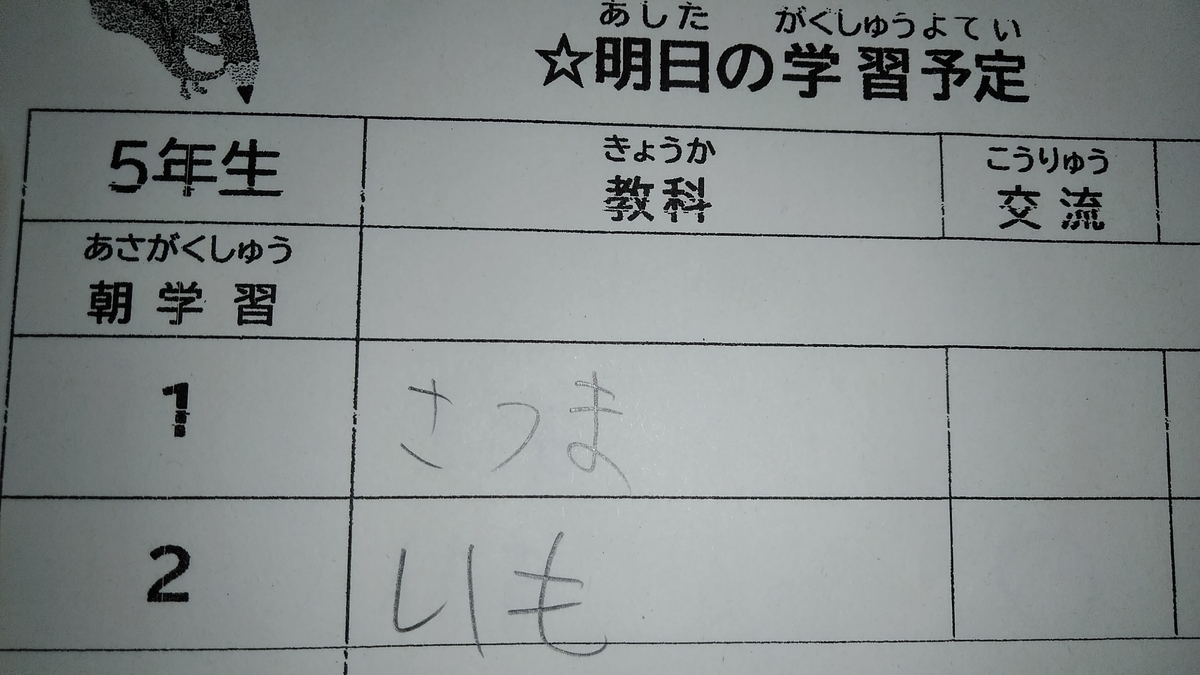 あした がくしゅうよてい
☆明日の学習予定
5年生 きょうか 教科 こうりゅう 交流
あさがくしゅう
朝学習
1 さつま
2 いも